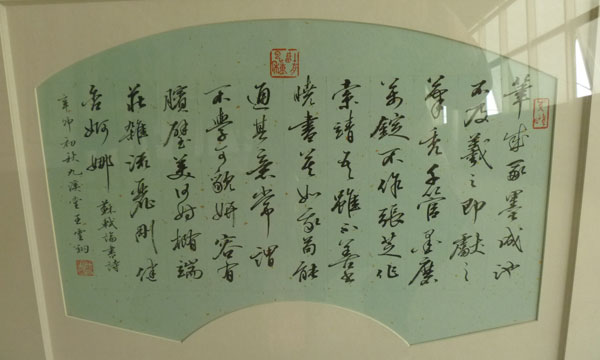 筆成冢墨成池
不及羲之即獻之
筆禿千管墨磨
萬錠不作張芝作
索靖吾雖不善書
曉書莫如我苟能
通其意常謂
不學可貌妍容有
矉璧美何妨橢端
莊雜流麗剛健
含婀娜
蘇軾論書詩
辛卯初秋九溪堂王雲